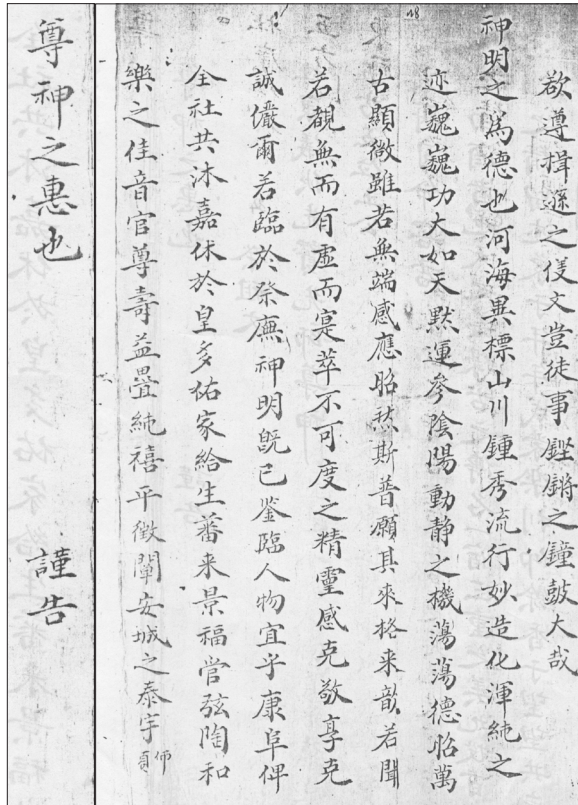 欲遵揖遜之伎文豈徒事鏗鏘之鐘鼓大哉
神明之爲德也河海異標山川鍾秀流行妙造化渾純之
迹巍巍功大如天默運參陰陽動静之機蕩蕩德昭萬
古顯微雖若無端感應昭然斯普願其來格来歆若聞
若覩無而有虛而寔萃不可度之精靈感克敬享克
誠儼爾若臨於祭廡神明旣已鉴臨人物宜乎康阜俾
全社共沐嘉休於皇多佑家給生蕃来景福官弦陶和
樂之佳音官尊壽益疊純禧平徵闡安城之泰宇仰
頁
尊神之惠也
謹告
48